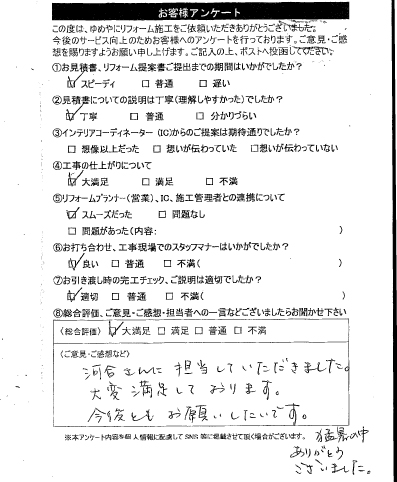 お客様アンケート
この度は、ゆめやにリフォーム施工をご依頼いただきありがとうございました。
今後のサービス向上のためお客様へのアンケートを行っております。ご意見・ご感
想を賜りますようお願い申し上げます。ご記入の上、ポストへ投函してください。
①お見積書、リフォーム提案書ご提出までの期間はいかがでしたか？
☑スピーディ □普通 □遅い
②見積書についての説明は丁寧(理解しやすかった)でしたか？
☑丁寧 □普通 □分かりづらい
③インテリアコーディネーター(IC)からのご提案は期待通りでしたか？
□想像以上だった □想いが伝わっていた □想いが伝わっていない
④工事の仕上がりについて
☑大満足 □満足 □不満
⑤リフォームプランナー(営業)、IC、施工管理者との連携について
☑スムーズだった □問題なし
□問題があった(内容: )
⑥お打ち合わせ、工事現場でのスタッフマナーはいかがでしたか？
☑良い □普通 □不満( )
⑦お引き渡し時の完工チェック、ご説明は適切でしたか？
☑適切 □普通 □不満( )
⑧総合評価、ご意見・ご感想・担当者への一言などございましたらお聞かせ下さい
(総合評価) ☑大満足 □満足 □普通 □不満
(ご意見・ご感想など)
河合さんに担当していただきました。
大変満足しております。
今後ともお願いしたいです。
※本アンケート内容を個人情報に配慮してSNS等に掲載させて頂く場合がございます。
猛暑の中
ありがとう
ございました。